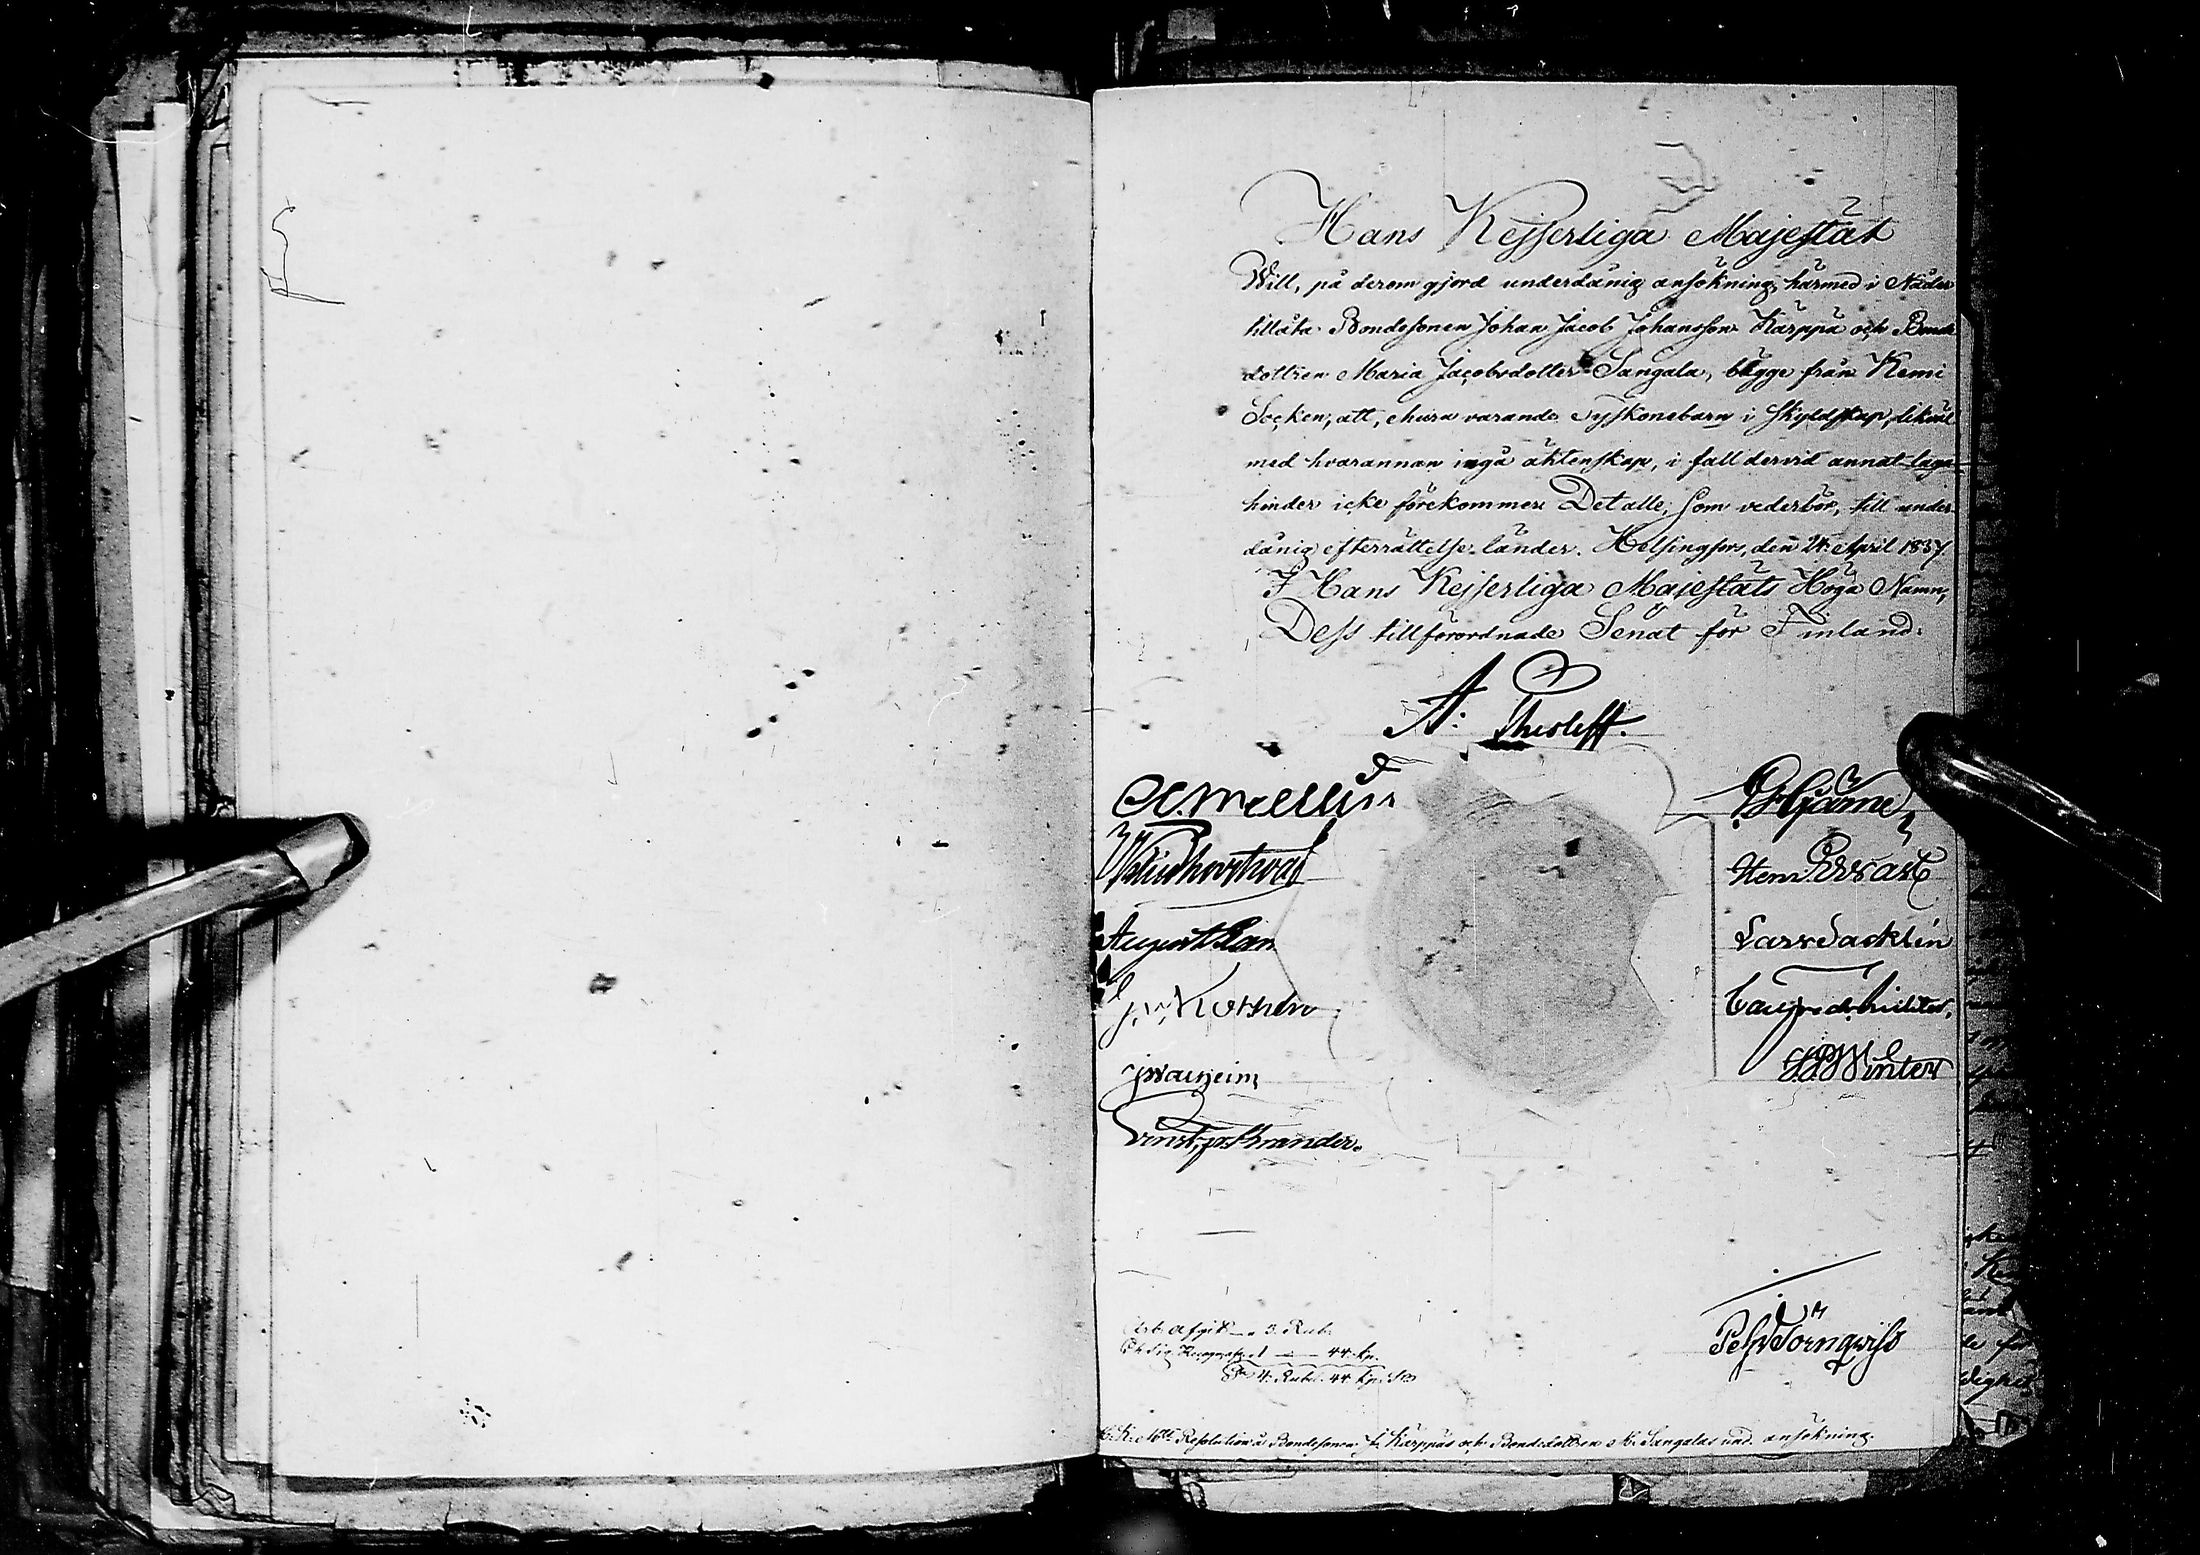 Hans Kejserliga Majestät
Will, på derom gjord underdånig ansökning, härmed i Nåder
tillåta Bondesonen Johan Jacob Johansson Kärppä och Bonde
dottren Maria Jacobsdotter Sangala, bägge från Kemi
Socken, att, ehuru varande Syskonebarn i skyldskap, likväl
med hvarannan ingå äktenskap, i fall dervid annat laga
hinder icke förekommer. Det alle, som vederbör, till under-
dånig efterrättelse länder. Helsingfors, den 24 April 1837.
I Hans Kejserliga Majestäts Höga Namn,
Dess tillförordnade Senat för Finland:
A: Thesleff.
G. Hjärne
August Ram
Lars Sacklén
J. P. Winter
Ernst, Brander.
Pehr Törnqwist
44. kp.
4. Rub. 44. kp.
Resolution å Bondesonen J. Kärppäs och Bondedottren M. Sangalas und. ansökning.